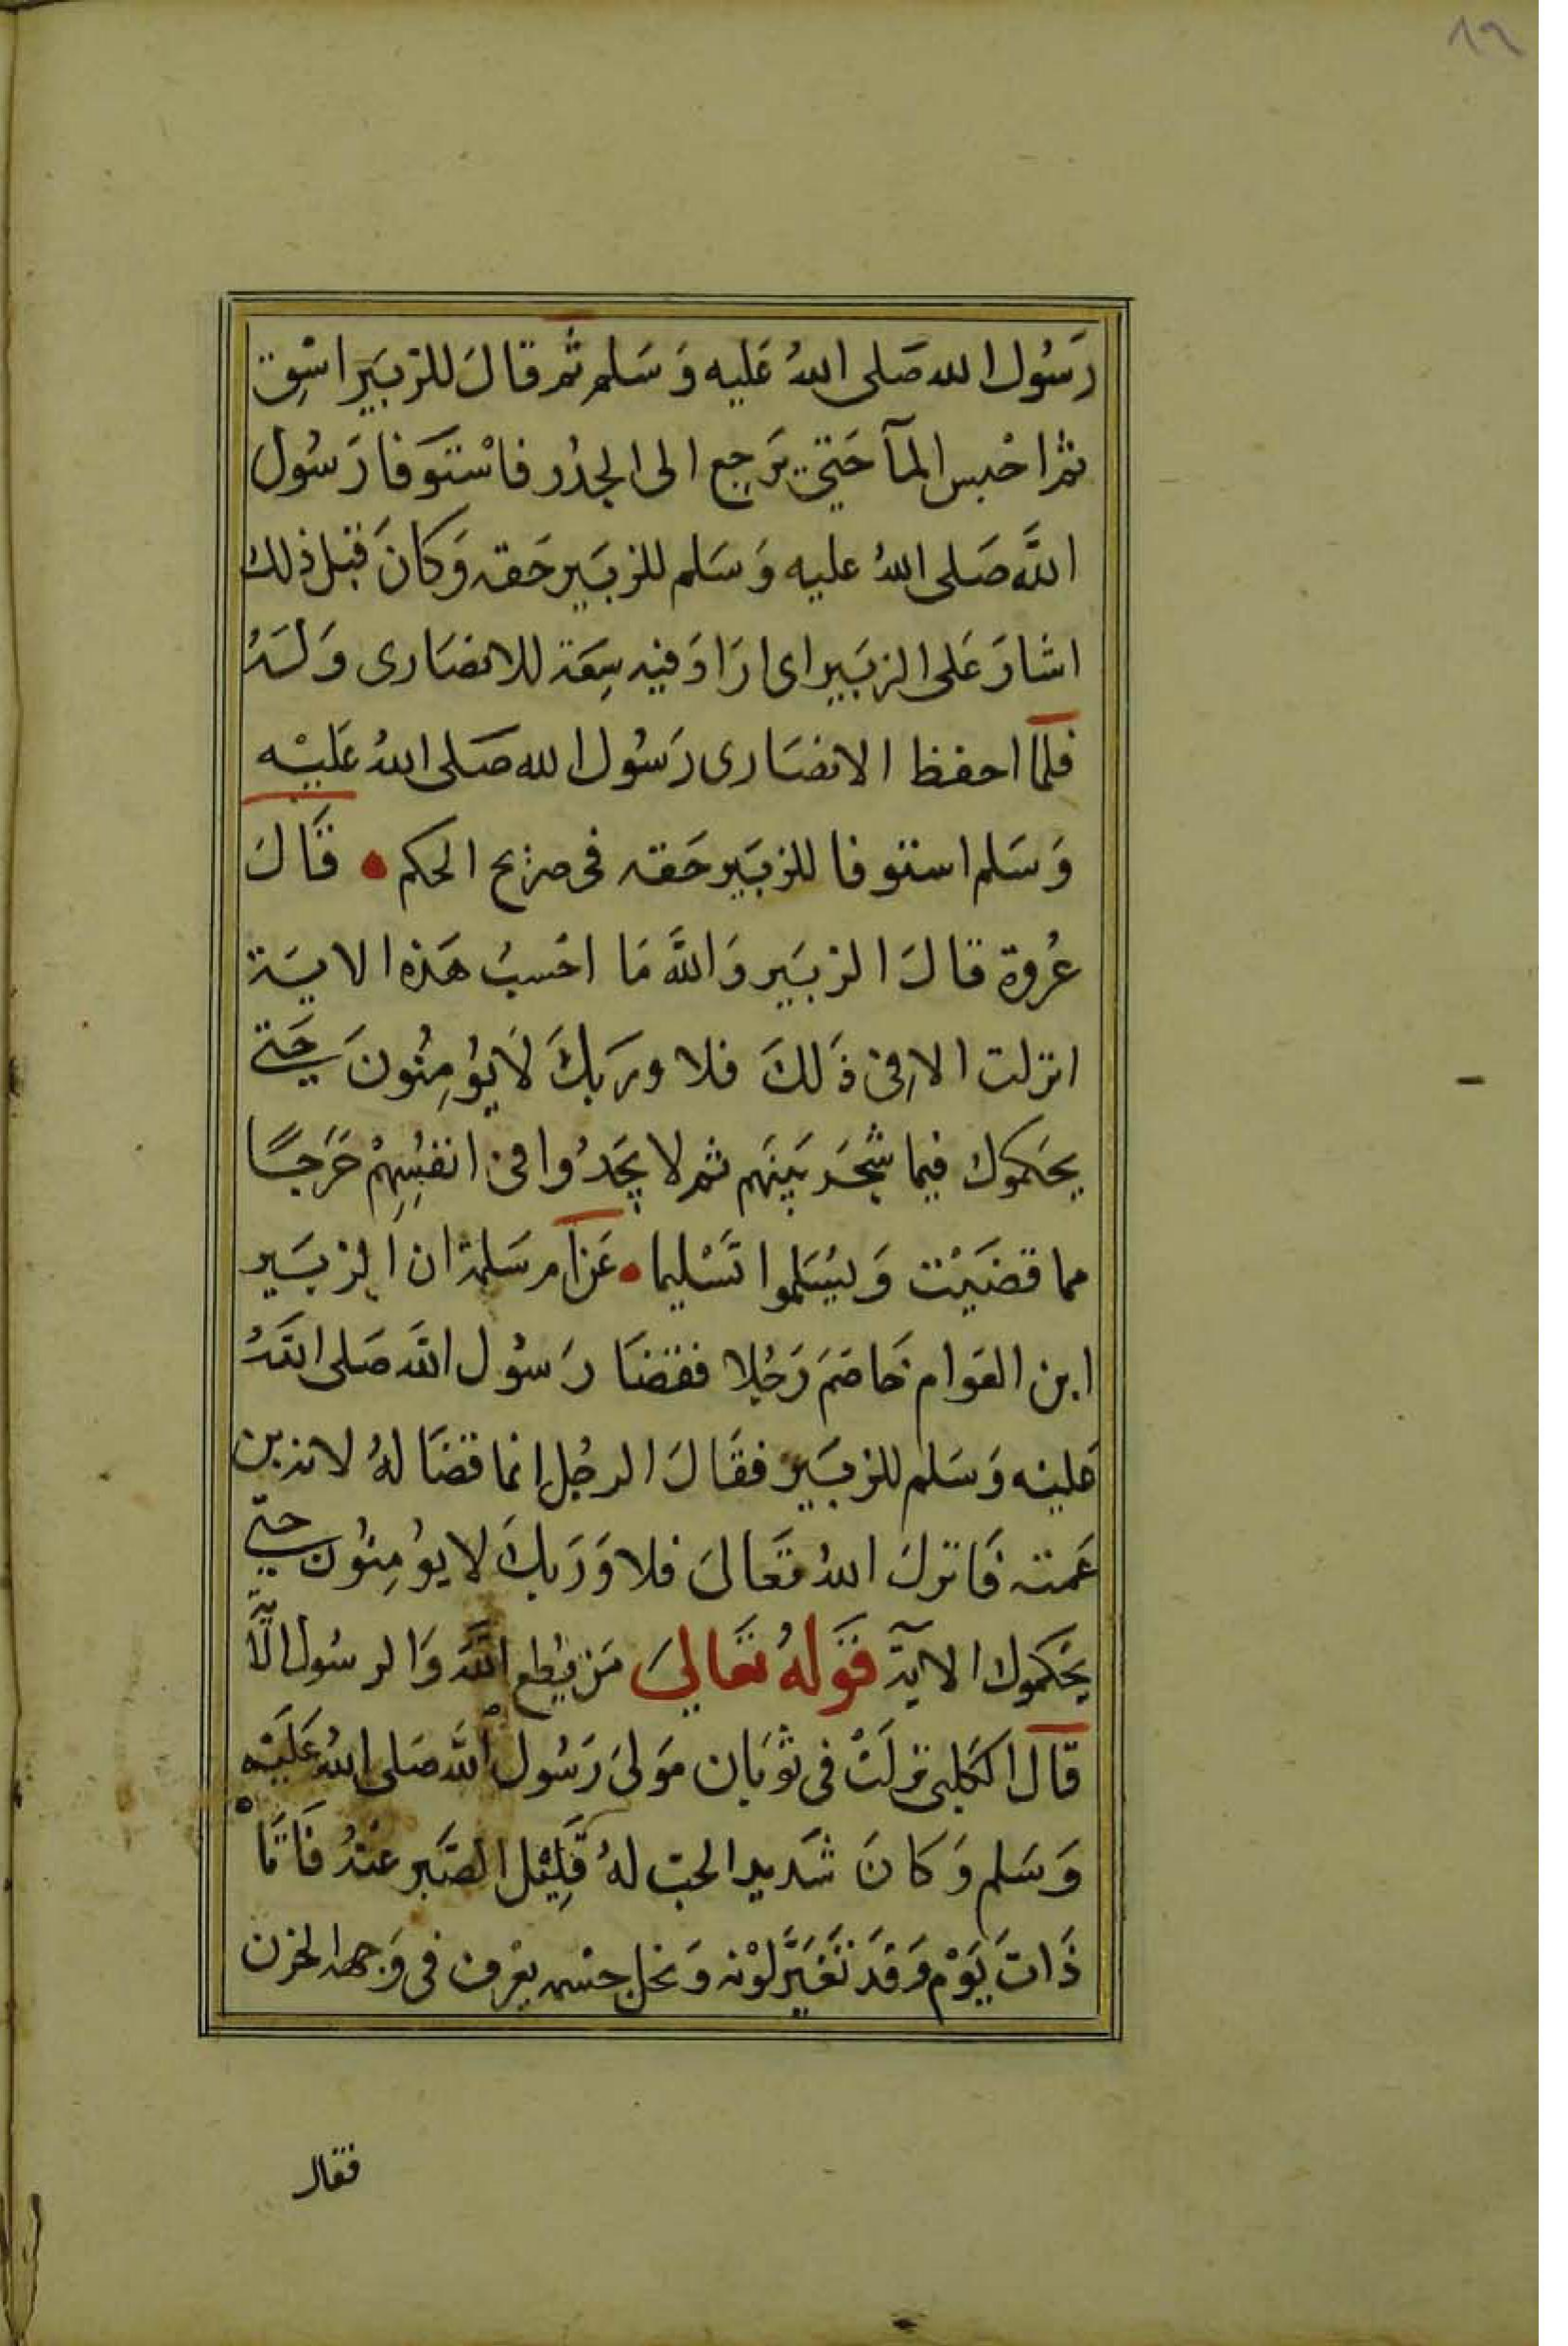 ٨٩
رَسُول الله صَلى اللهُ عَليه وَسَلم ثم قالَ للزبَير اسْق
ثم احْبس المآ حَتى يَرجع الى الجدُر فاسْتَوفا رَسُول
اللَّه صَلى اللهُ عليه وَسَلم للزبَير حَقه وَكانَ قبل ذلك
اشارَ عَلى الزبَير اى ارَادَ فيه سِعَة للانصَارى وَلَهُ
فلمَّا احفظ الانصَارى رَسُول الله صَلى اللهُ عَليْه
وَسَلم استوفا للزبَير حَقه فى صريح الحكم • قَالَ
عُروة قالَ الزبَير وَاللَّه مَا احْسبُ هَذه الايَة
انزلت الا فِى ذَلكَ فلا ورَبكَ لَا يُؤمِنُونَ حَتى
يحَكموك فيما شَجَر بَينَهم ثم لا يجَدُوا فى انفُسِهِمْ حَرَجًا
مما قضَيْت وَيسَلموا تَسْليما • عَن ام سَلمة ان الزبَير
ابن العَوام خَاصَمَ رَجُلا فقضَا رَسُول اللَّه صَلى اللَّهُ
عَليْه وَسَلم للزبَير فقَالَ الرجُل انما قضَا لهُ لانه بن
عَمته فَانزلَ اللهُ تعَالىَ فلا وَرَبكَ لا يؤمِنُونَ حتى
يحَكموك الآيَة قَولهُ تعَالىَ مَن يُطع اللَّهَ وَالرسُول الآيَة
قَالَ الكَلبى نزلَتْ فى ثوبَان مَولىَ رَسُول اللَّه صَلى اللهُ عَلَيْه
وَسَلم وَكَانَ شَديد الحب لهُ قَلِيْل الصَّبر عنْهُ فَاتَاْهُ
ذَاتَ يَوْم وَقدَ تَغيَّر لوْنه وَنحل جسْمه يعْرف فى وَجهه الحزن
فقال